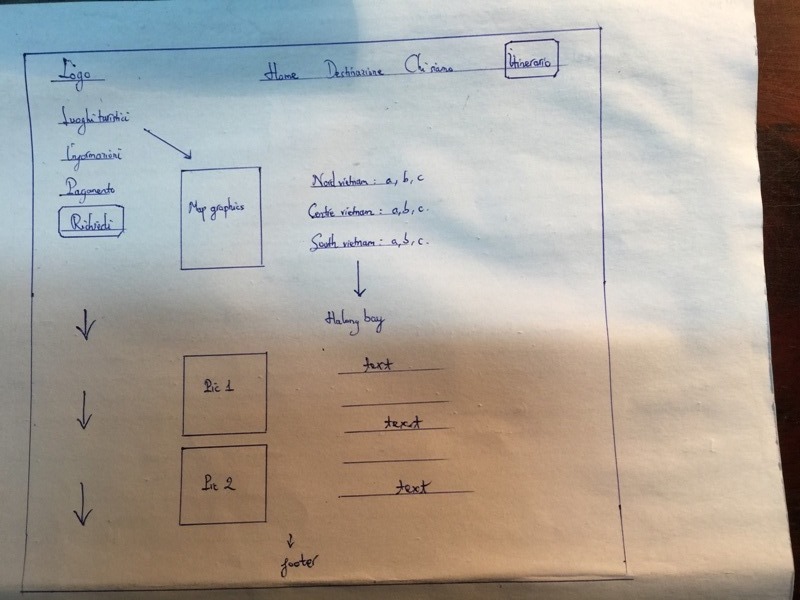 Logo
Home Destinazione Chi siamo Itinerario
Luoghi turistici
Informazioni
Pagamento
Richiedi
Map graphics
Nord vietnam : a, b, c
Centre vietnam : a, b, c.
South vietnam : a, b, c.
Halong bay
Pic 1
text
text
Pic 2
text
footer